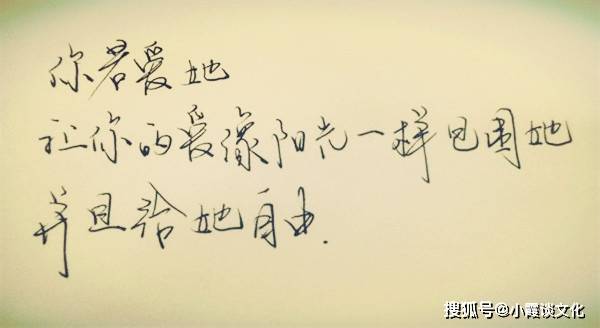 你若爱她
让你的爱像阳光一样包围她
并且给她自由.
搜狐号@小霞谈文化